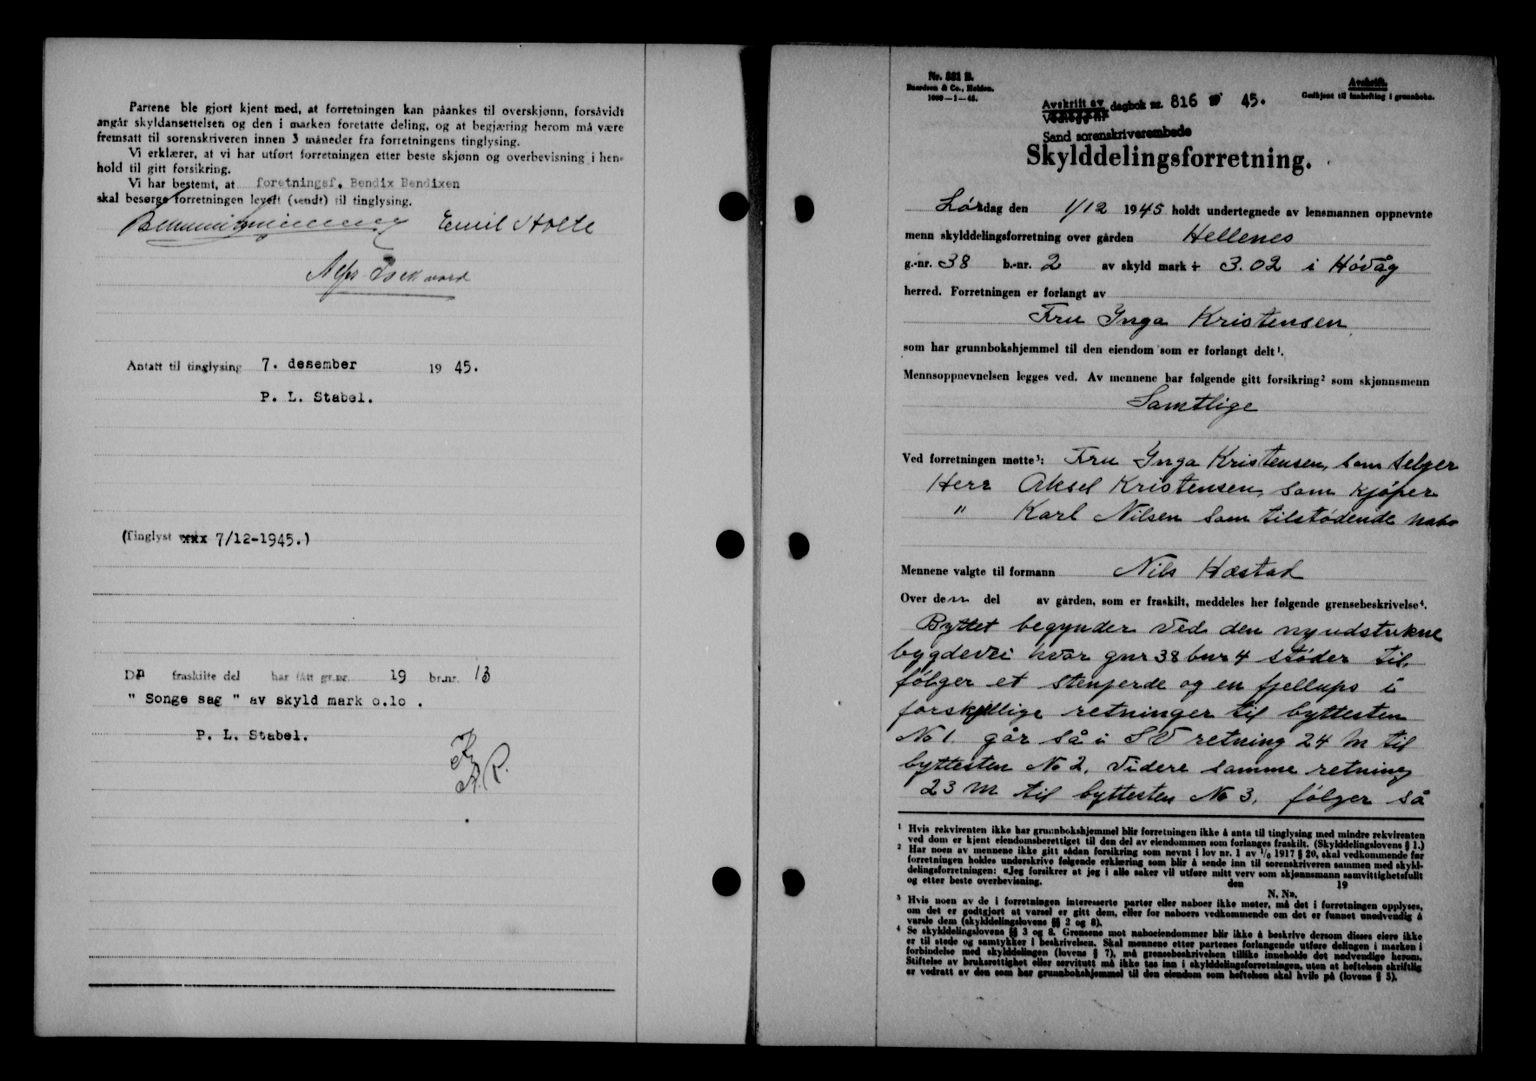 Partene ble gjort kjent med, at forretningen kan påankes til overskjønn, forsåvidt
angår skyldansettelsen og den i marken foretatte deling, og at begjæring herom må være
fremsatt til sorenskriveren innen 3 måneder fra forretningens tinglysing.
Vi erklærer, at vi har utført forretningen etter beste skjønn og overbevisning i hen-
hold til gitt forsikring.
Vi har bestemt, at foretningsf. Bendix Bendixen
skal besørge forretningen levert (sendt) til tinglysing.
Emil Holte
Antatt til tinglysing 7. desember 1945.
P. L. Stabel.
(Tinglyst xxx 7/12-1945.)
Den fraskilte del har fått gr.nr. 19 br.nr. 13
" Songe sag " av skyld mark 0.10 .
P. L. Stabel.
Nr. 881 B.
1000—1—45.
Avskrift.
Godkjent til innhefting i grunnboka.
Avskrift av dagbok nr. 816 45.
Sand sorenskriverembede
Skylddelingsforretning.
Lördag den 1/12 1945 holdt undertegnede av lensmannen oppnevnte
menn skylddelingsforretning over gården Hellenes
g.-nr. 38 b.-nr. 2 av skyld mark 3.02 i Hövåg
herred. Forretningen er forlangt av
Fru Inga Kristensen
som har grunnbokshjemmel til den eiendom som er forlangt delt¹.
Mennsoppnevnelsen legges ved. Av mennene har følgende gitt forsikring² som skjønnsmenn
Samtlige
Ved forretningen møtte³: Fru Inga Kristensen, som selger
Herr Aksel Kristensen, som kjöper
" Karl Nilsen som tilstödende nabo
Mennene valgte til formann Nils Hæstad
Over den del av gården, som er fraskilt, meddeles her følgende grensebeskrivelse⁴.
Byttet begynder ved den nyudstukne
bygdevei hvor gnr 38 bnr 4 stöder til,
fölger et stenjerde og en fjellups i
forskjellige retninger til byttesten
No 1. går så i SV retning 24 m til
byttesten No 2, videre samme retning
23 m til byttesten No 3, fölger så
¹ Hvis rekvirenten ikke har grunnbokshjemmel blir forretningen ikke å anta til tinglysing med mindre rekvirenten
ved dom er kjent eiendomsberettiget til den del av eiendommen som forlanges fraskilt. (Skylddelingslovens § 1.)
² Har noen av mennene ikke gitt sådan forsikring som nevnt i lov nr. 1 av 1/6 1917 § 20, skal vedkommende før
forretningen holdes underskrive følgende erklæring som blir å sende inn til sorenskriveren sammen med skyld-
delingsforretningen: «Jeg forsikrer at jeg i alle saker vil utføre mitt verv som skjønnsmann samvittighetsfullt
og etter beste overbevisning. den 19
N. N».
³ Hvis noen av de i forretningen interesserte parter eller naboer ikke møter, må det i forretningen opplyses,
om det er godtgjort at varsel er gitt dem, eller for naboers vedkommende om det er funnet unødvendig å
varsle dem (skylddelingslovens §§ 2 og 8).
⁴ Se skylddelingslovens §§ 3 og 8. Grensene mot naboeiendommer blir ikke å beskrive dersom disses eiere ikke
er til stede og samtykker i beskrivelsen. Skal mennene etter partenes forlangende utføre delingen i marken i
forbindelse med skylddelingen (lovens § 7), må grensebeskrivelsen tillike inneholde det nødvendige herom.
Stiftelse av bruksrettighet eller servitutt må ikke tas inn i skylddelingsforretningen, uten at heftelsen skriftlig
er vedtatt av den som har grunnbokshjemmel til den eiendom som heftelsen skal hvile på (lovens § 5).